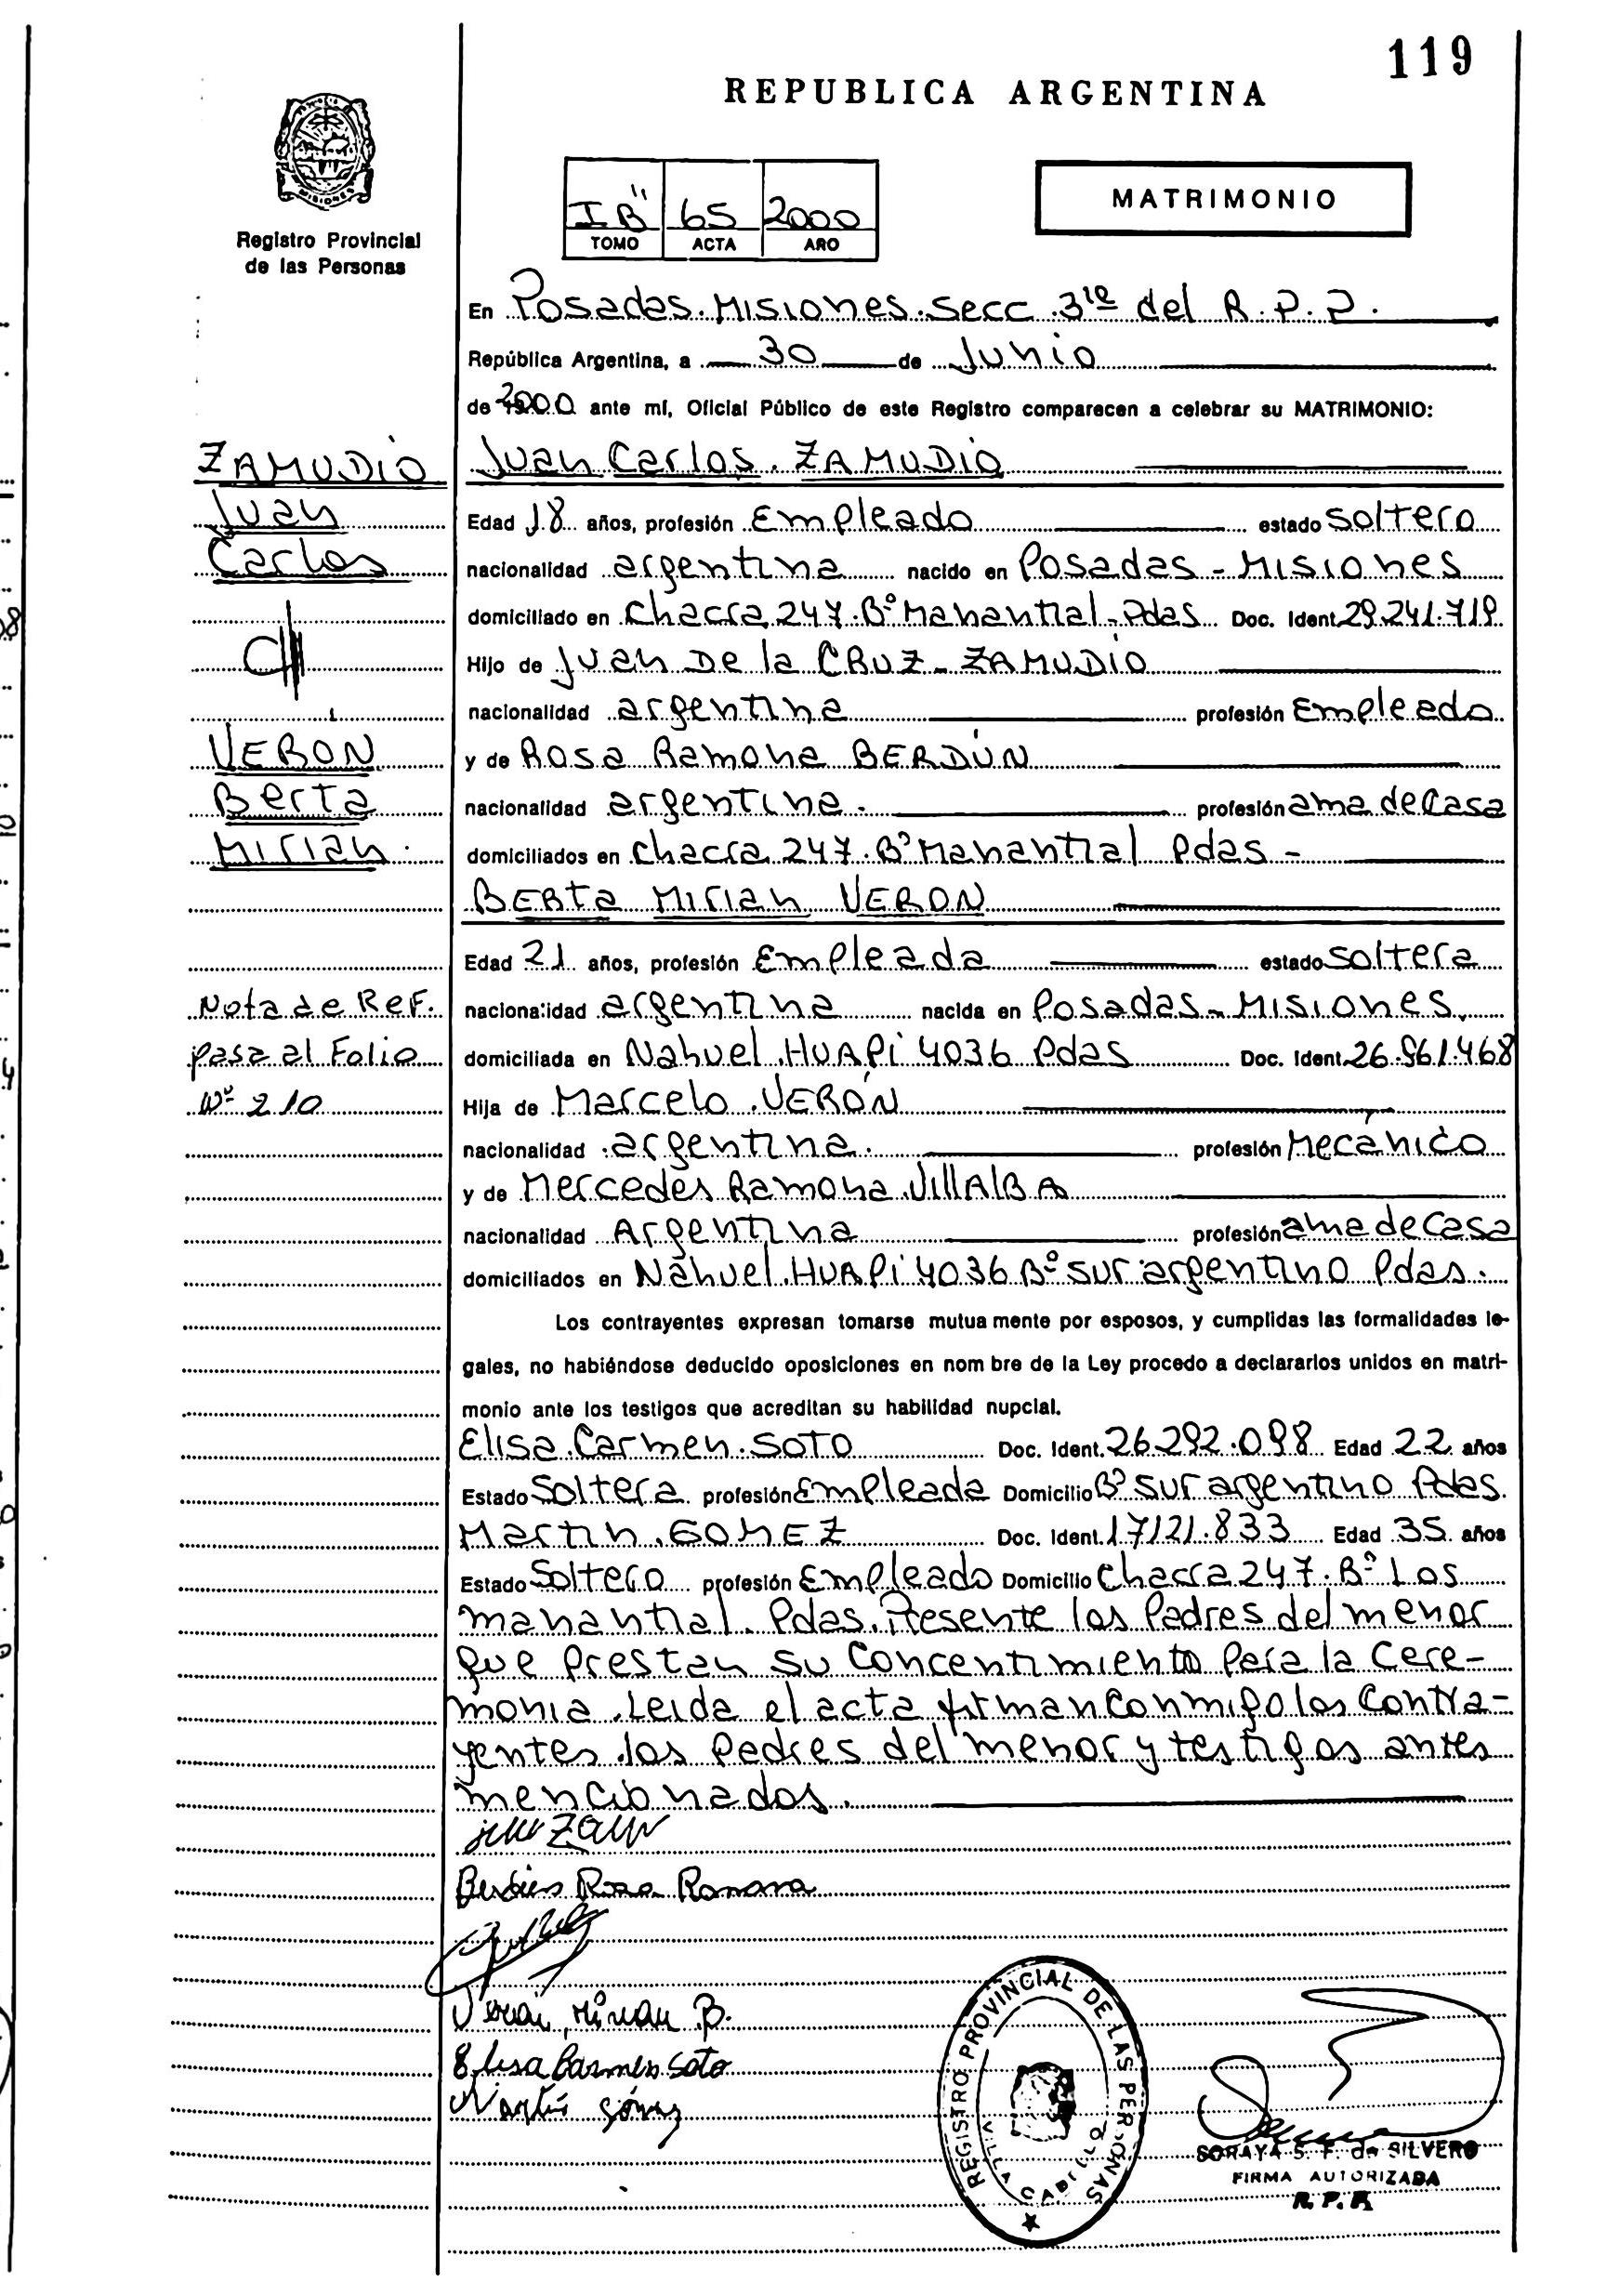 119
REPUBLICA ARGENTINA
MISIONES
Registro Provincial
de las Personas
I B" 65 2000
TOMO ACTA AÑO
MATRIMONIO
En Posadas. Misiones. Secc 3ra del R. P. P.
República Argentina, a 30 de Junio
de 2000 ante mí, Oficial Público de este Registro comparecen a celebrar su MATRIMONIO:
ZAMUDIO
Juan
Carlos
VERON
Berta
Mirian.
Nota de Ref.
pasa al Folio
Nº 210
Juan Carlos. ZAMUDIO
Edad 18 años, profesión Empleado estado soltero
nacionalidad argentina nacido en Posadas - Misiones
domiciliado en Chacra 247. Bº Manantial - Pdas Doc. Ident. 29.241.719
Hijo de Juan De la CRUZ - ZAMUDIO
nacionalidad argentina profesión Empleado
y de Rosa Ramona BERDÚN
nacionalidad argentina. profesión ama de Casa
domiciliados en Chacra 247. Bº Manantial Pdas -
BERta Mirian VERON
Edad 21 años, profesión Empleada estado Soltera
nacionalidad argentina nacida en Posadas - Misiones.
domiciliada en Nahuel HUAPi 4036 Pdas Doc. Ident. 26.961.468
Hija de Marcelo. VERÓN
nacionalidad argentina. profesión Mecánico
y de Mercedes Ramona VillAlBA
nacionalidad Argentina profesión ama de Casa
domiciliados en Nahuel HUAPi 4036 Bº sur argentino Pdas.
Los contrayentes expresan tomarse mutua mente por esposos, y cumplidas las formalidades le-
gales, no habiéndose deducido oposiciones en nom bre de la Ley procedo a declararlos unidos en matri-
monio ante los testigos que acreditan su habilidad nupcial.
Elisa Carmen. SOTO Doc. Ident. 26.292.098 Edad 22 años
Estado Soltera profesión Empleada Domicilio Bº sur argentino Pdas.
Martin. GOMEZ Doc. Ident. 17121.833 Edad 35 años
Estado Soltero profesión Empleado Domicilio Chacra 247. Bº Los
manantial. Pdas. Presente los Padres del menor
que prestan su Concentimiento Para la Cere-
monia. Leida el acta firman Conmigo los Contra-
yentes los padres del menor y testigos antes
mencionados.
Berdún Rosa Ramona
Veron, Mirian B.
Elisa Carmen Soto
Martín Gómez
REGISTRO PROVINCIAL DE LAS PERSONAS
VILLA CABELLO
SORAYA S. F. de SILVERO
FIRMA AUTORIZADA
R. P. P.